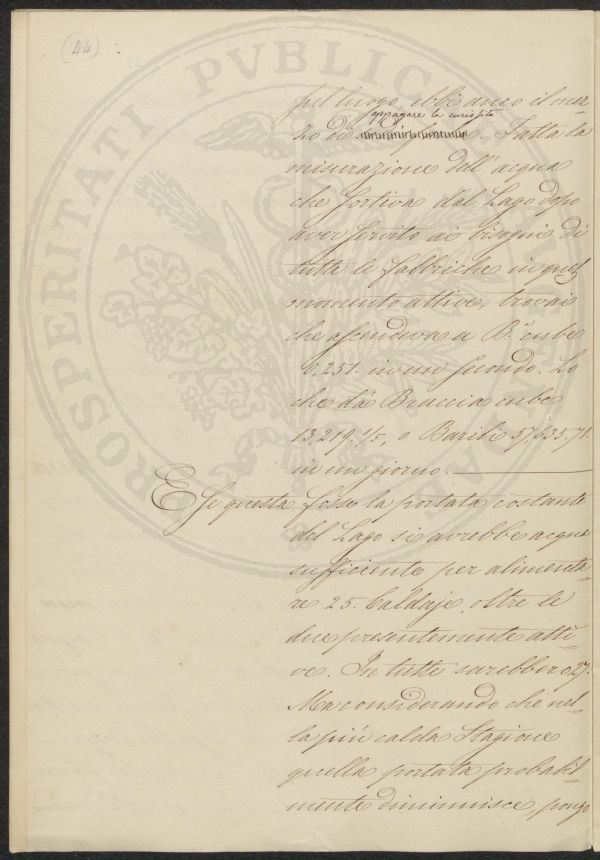 (44)
PROSPERITATI PVBLICAE
sul luogo, ebbi anco il mez-
appagare la curiosità
zo di. Fatta la
misurazione dell'acqua
che sortiva dal Lago dopo
aver servito ai bisogni di
tutte le fabbriche in quel
momento attive, trovai
che ascendeva a B.ª cube
0,251. in un secondo. Lo
che dà Braccia cube
13,219.1/5, o Barili 57,635.71.
in un giorno.
E se questa fosse la portata costante
del Lago si avrebbe acqua
sufficiente per alimenta-
re 25. Caldaje, oltre le
due presentemente atti-
ve. In tutte sarebbero 27.
Ma considerando che nel-
la più calda Stagione
quella portata probabil-
mente diminuisce, pongo